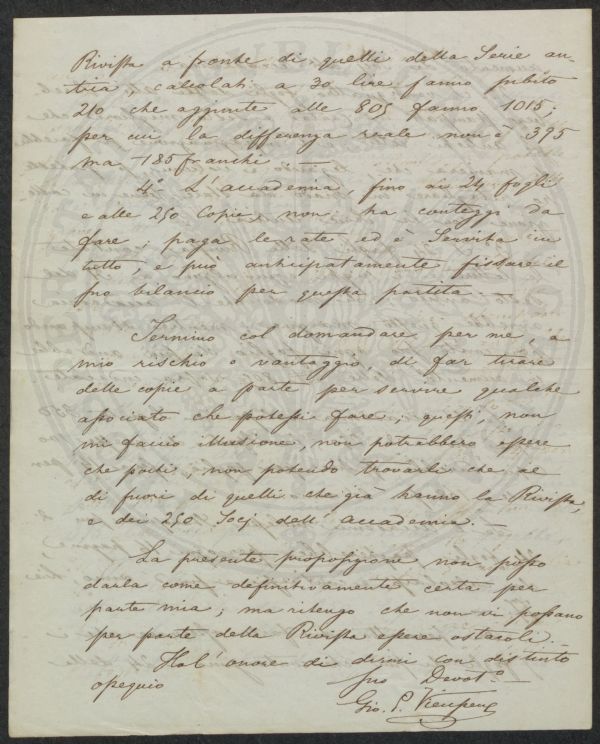 Rivista a fronte di quelli della Serie an-
tica, calcolati a 30 lire fanno subito
210 che aggiunte alle 805 fanno 1015;
per cui la differenza reale non è 395
ma 185 franchi. —
4° L'accademia, fino ai 24 fogli
e alle 250 Copie, non ha conteggi da
fare; paga le rate ed è Servita in
tutto, e può anticipatamente fissare il
suo bilancio per questa partita —
Termino col domandare per me, a
mio rischio o vantaggio, di far tirare
delle copie a parte per servire qualche
associato che potessi fare; questi, non
mi faccio illusione, non potrebbero essere
che pochi, non potendo trovarli che al
di fuori di quelli che già hanno la Rivista,
e dei 250 Socj dell'accademia. —
La presente proposizione non posso
darla come definitivamente certa per
parte mia; ma ritengo che non vi possano
per parte della Rivista essere ostacoli.
Ho l'onore di dirmi con distinto
ossequio
Suo Devot.°
Gio. P. Vieusseux